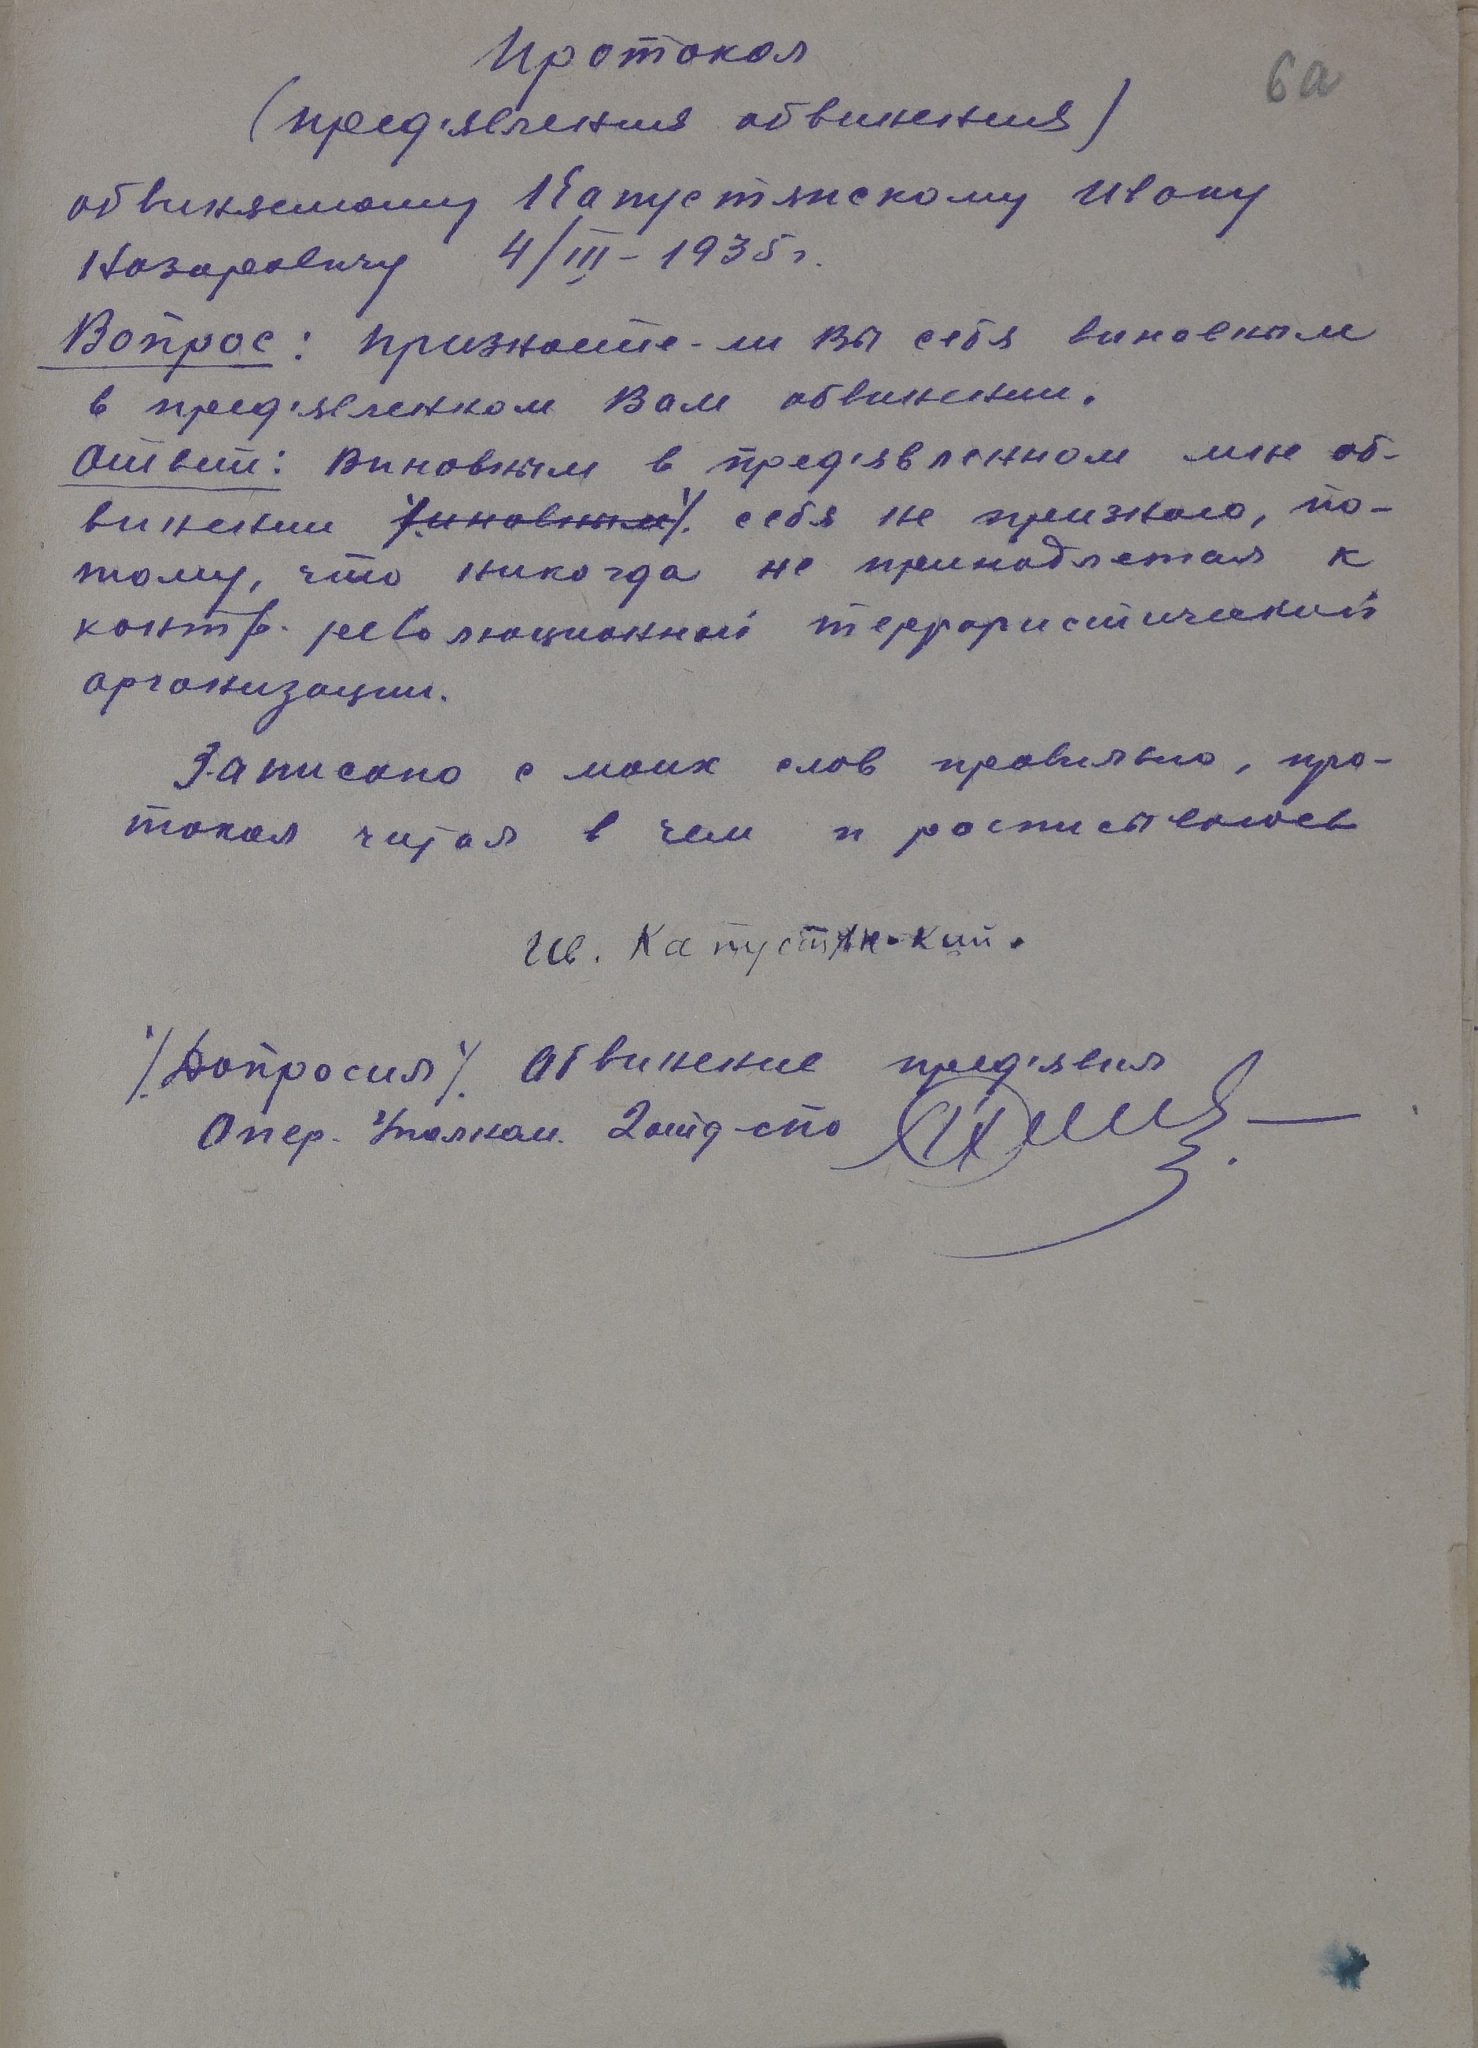 6а
Протокол
(пред'явления обвинения)
обвиняемому Капустянскому Ивану
Назаровичу 4/III-1935г.
Вопрос: признаете-ли Вы себя виновным
в пред'явленном Вам обвинении.
Ответ: Виновным в пред'явленном мне об-
винении ./виновным/. себя не признаю, по-
тому, что никогда не принадлежал к
контр-революционной террористической
организации.
Записано с моих слов правильно, про-
токол читал в чем и росписываюсь
Ив. Капустянский.
./Допросил/. Обвинение пред'явил
Опер. Уполном. 2 отд СПО